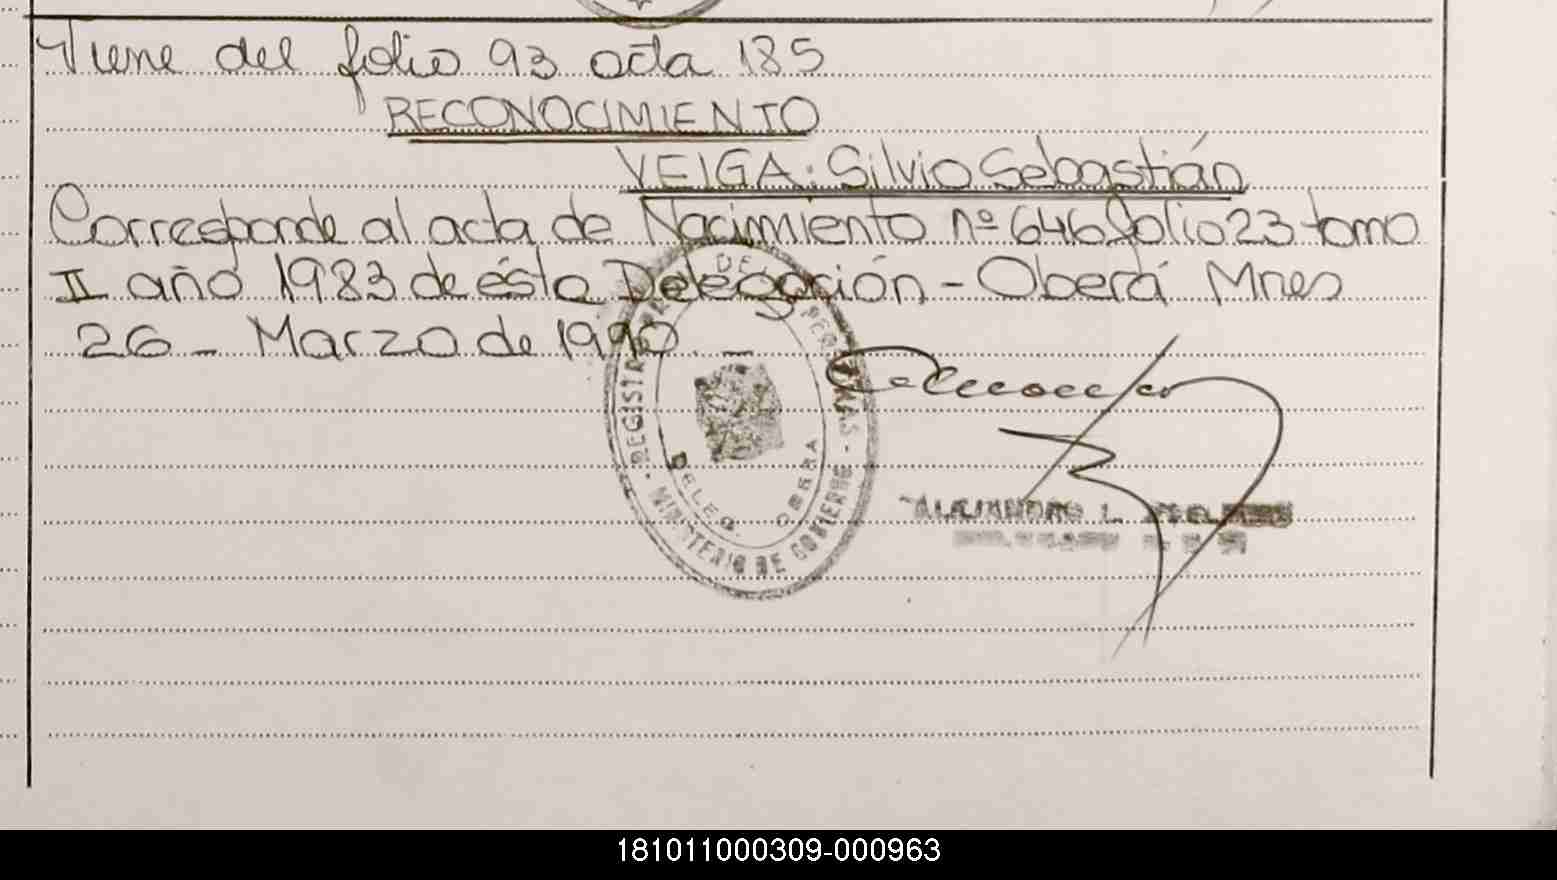 Viene del folio 93 acta 185
RECONOCIMIENTO
VEIGA: Silvio Sebastián
Corresponde al acta de Nacimiento nº 646 folio 23 tomo
II año 1983 de ésta Delegación - Oberá Mnes
26 - Marzo de 1990. —
REGISTRO DE PERSONAS
MINISTERIO DE GOBIERNO
DELEG. OBERA
ALEJANDRO L.
181011000309-000963